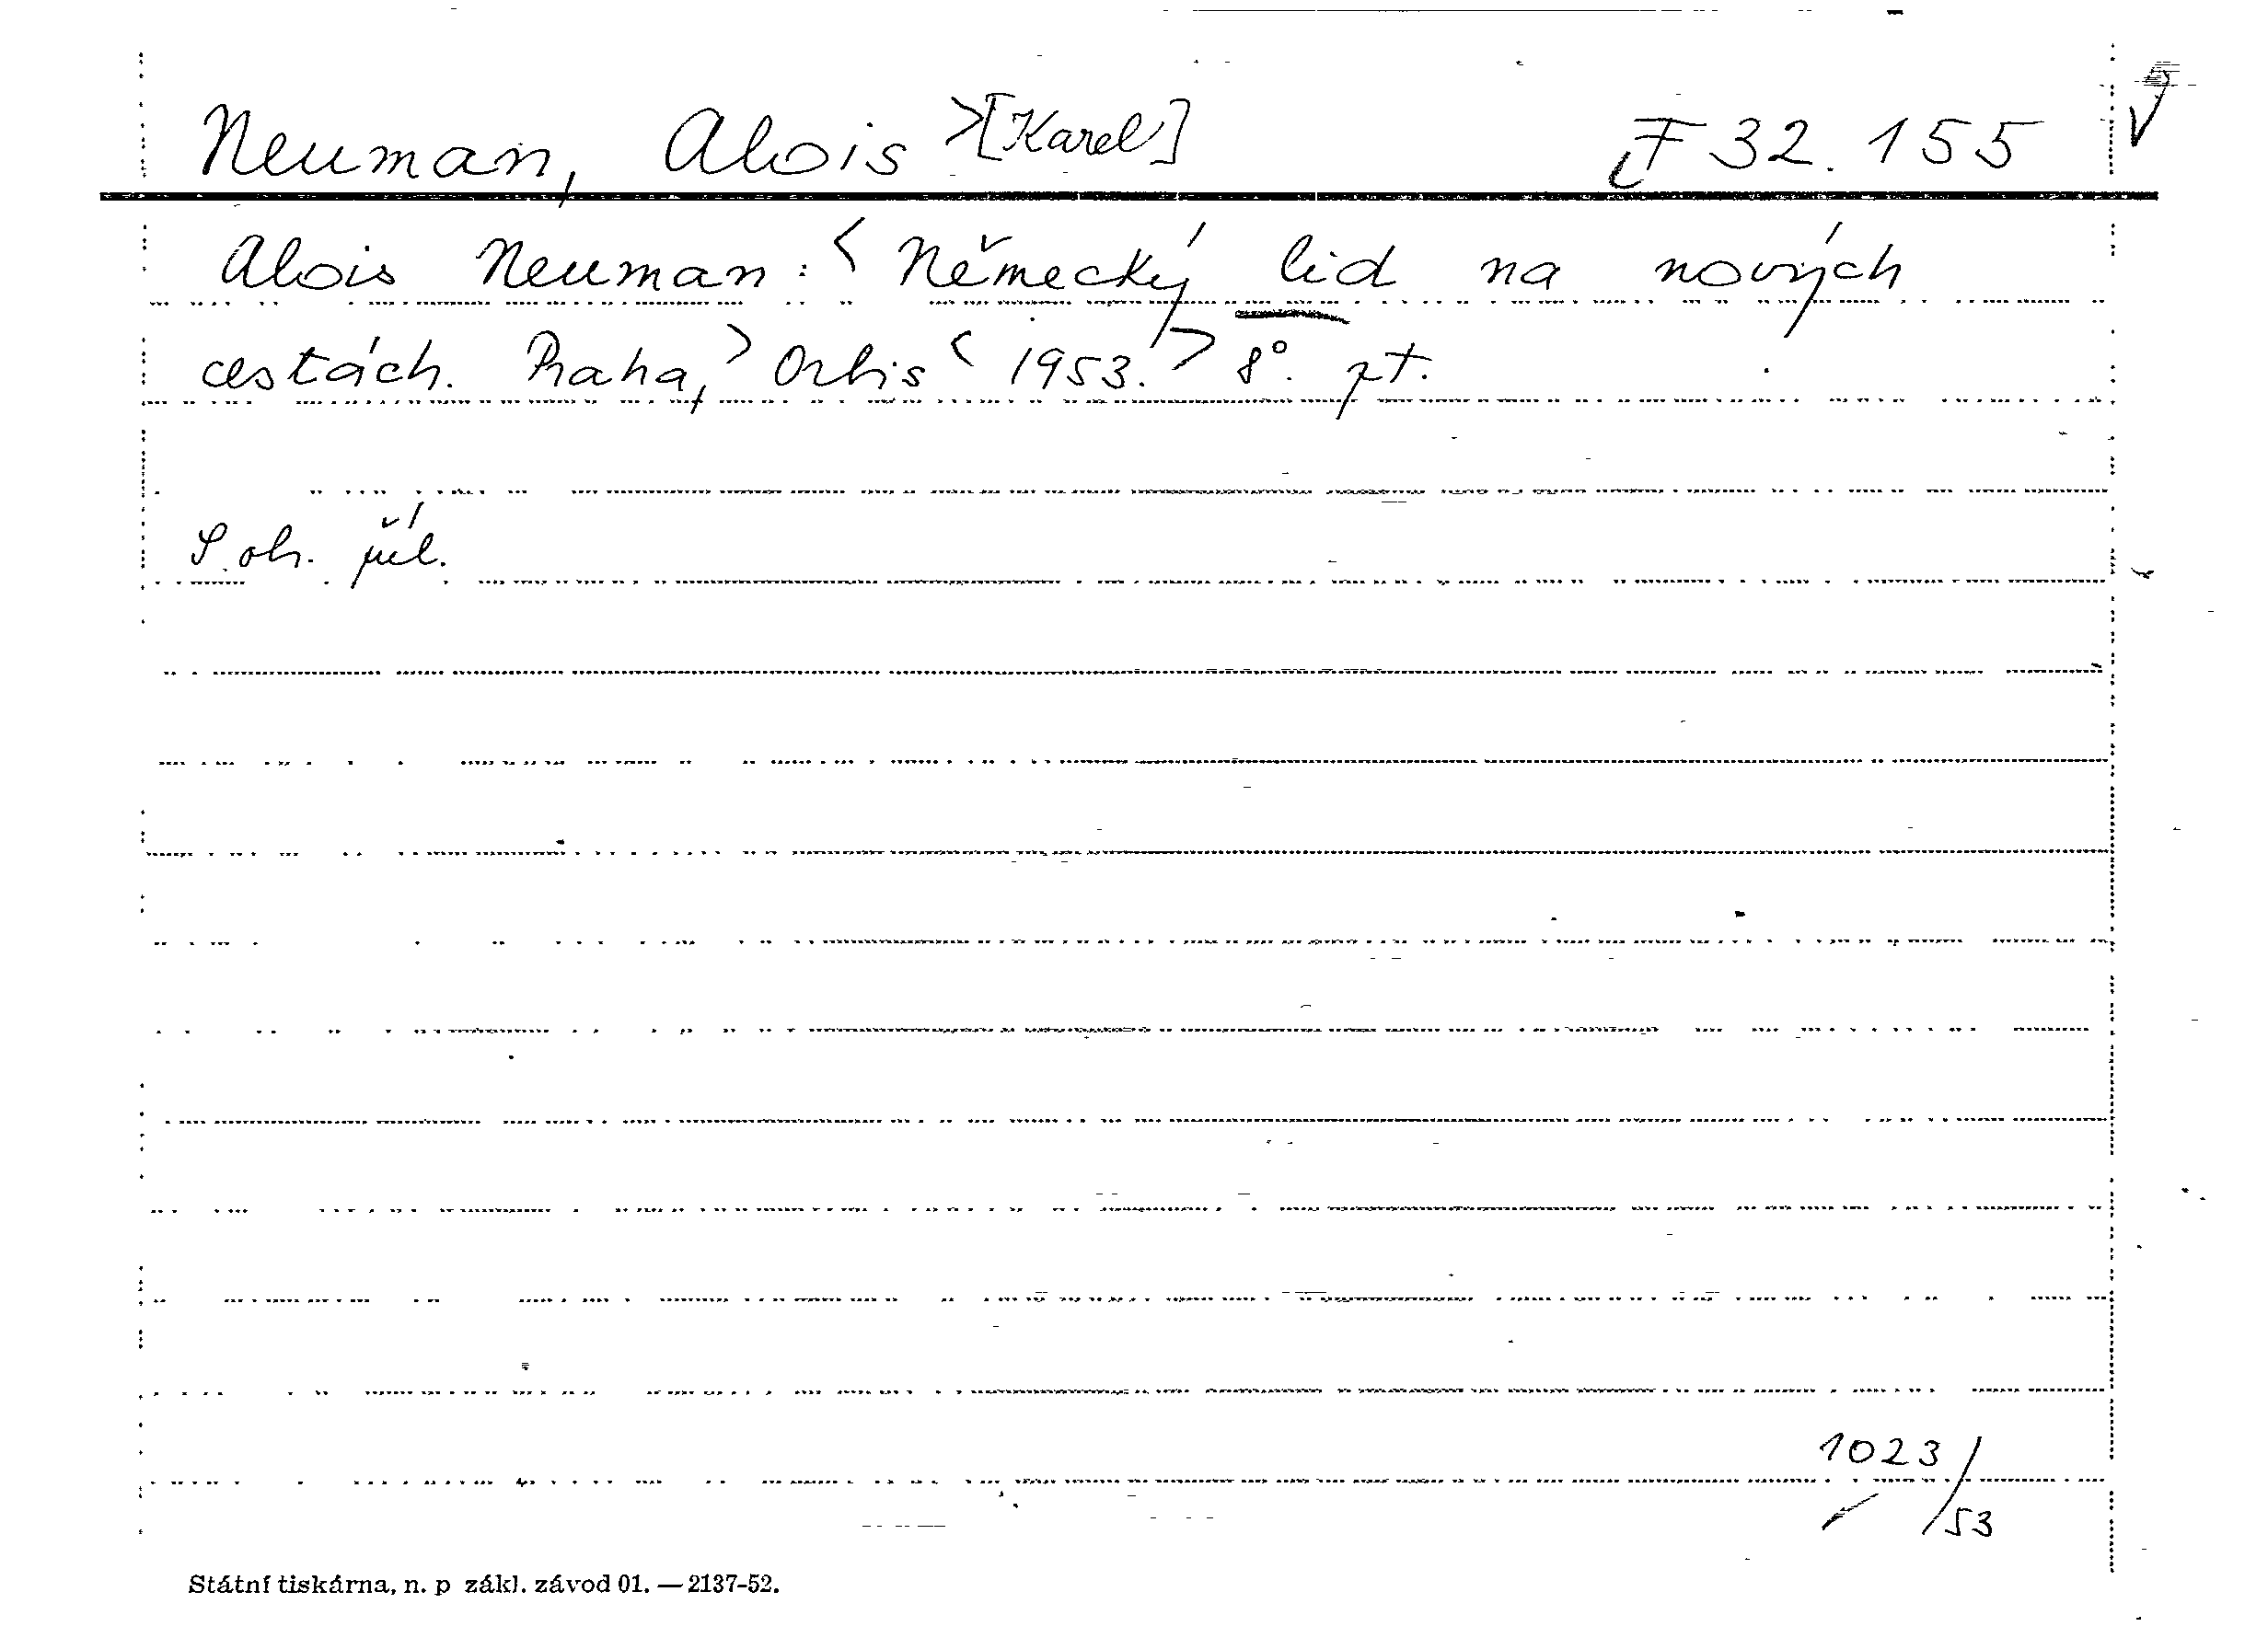 Neuman, Alois >[Karel] F 32.155
Alois Neuman: < Německý lid na nových
cestách. Praha, > Orbis < 1953. > 8°. pt.
S obr. příl.
1023/
53
Státní tiskárna, n. p zákl. závod 01. — 2137-52.